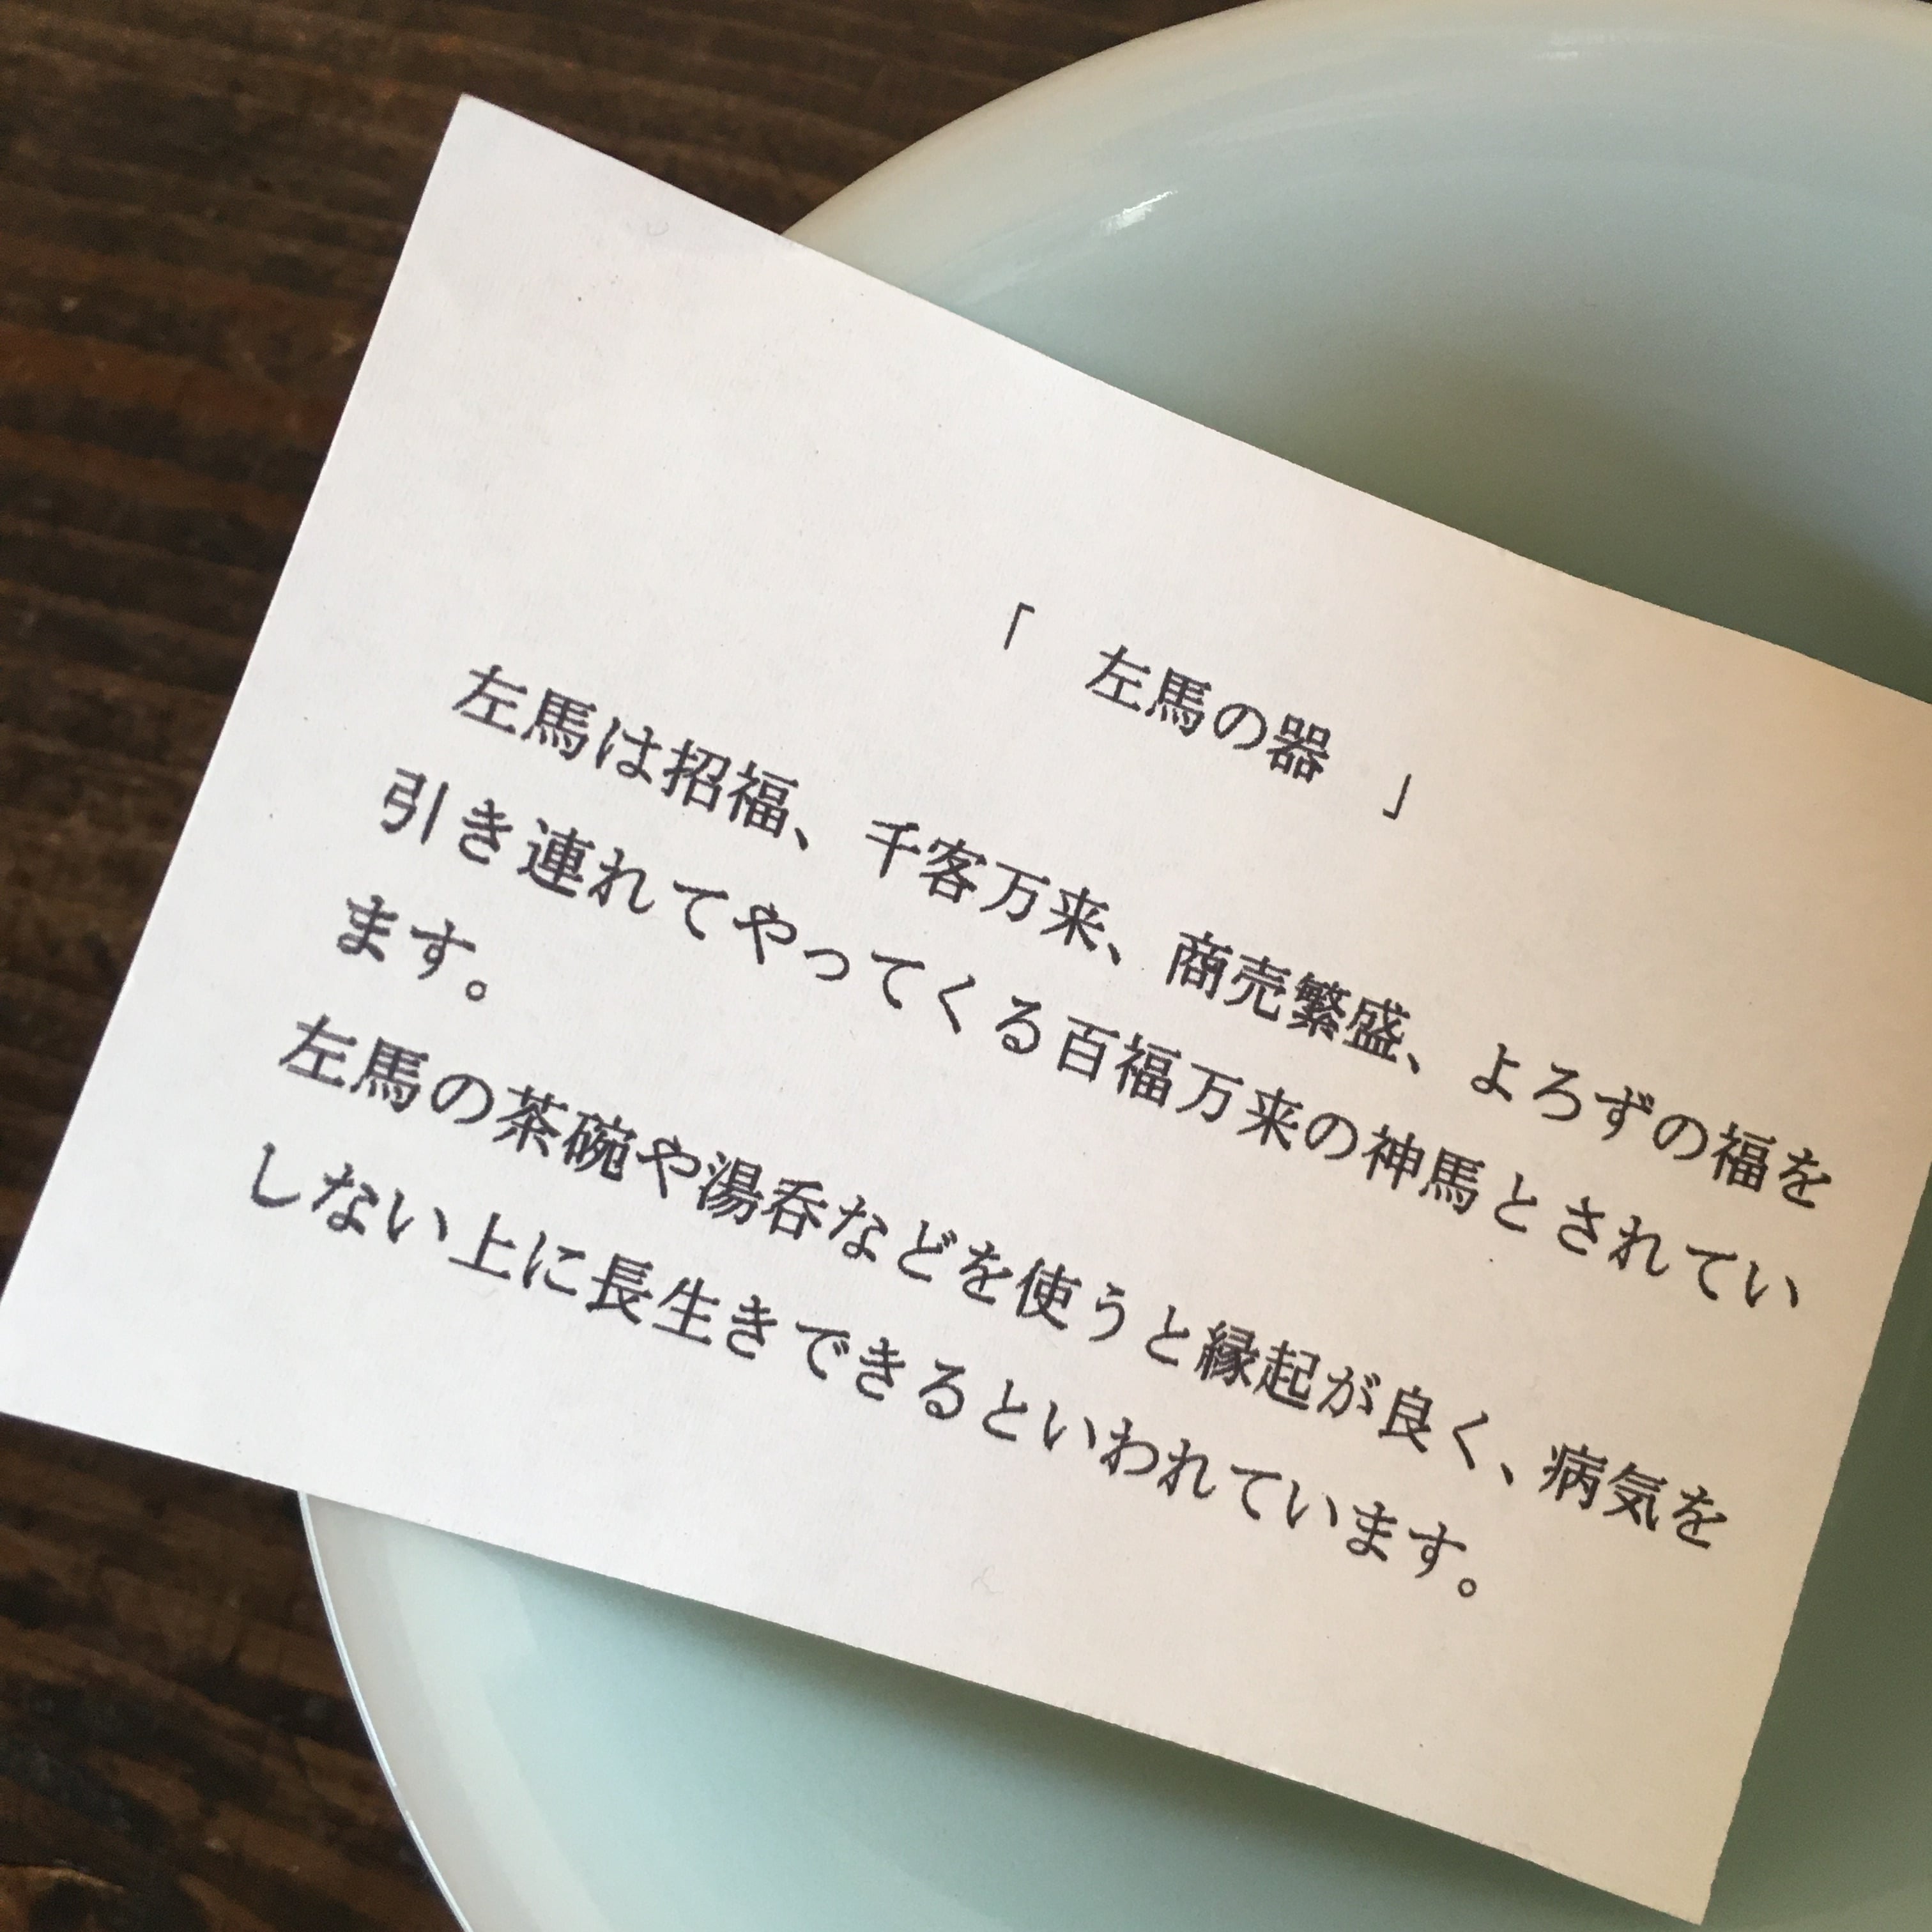 「　左馬の器　」
左馬は招福、千客万来、商売繁盛、よろずの福を
引き連れてやってくる百福万来の神馬とされてい
ます。
左馬の茶碗や湯呑などを使うと縁起が良く、病気を
しない上に長生きできるといわれています。